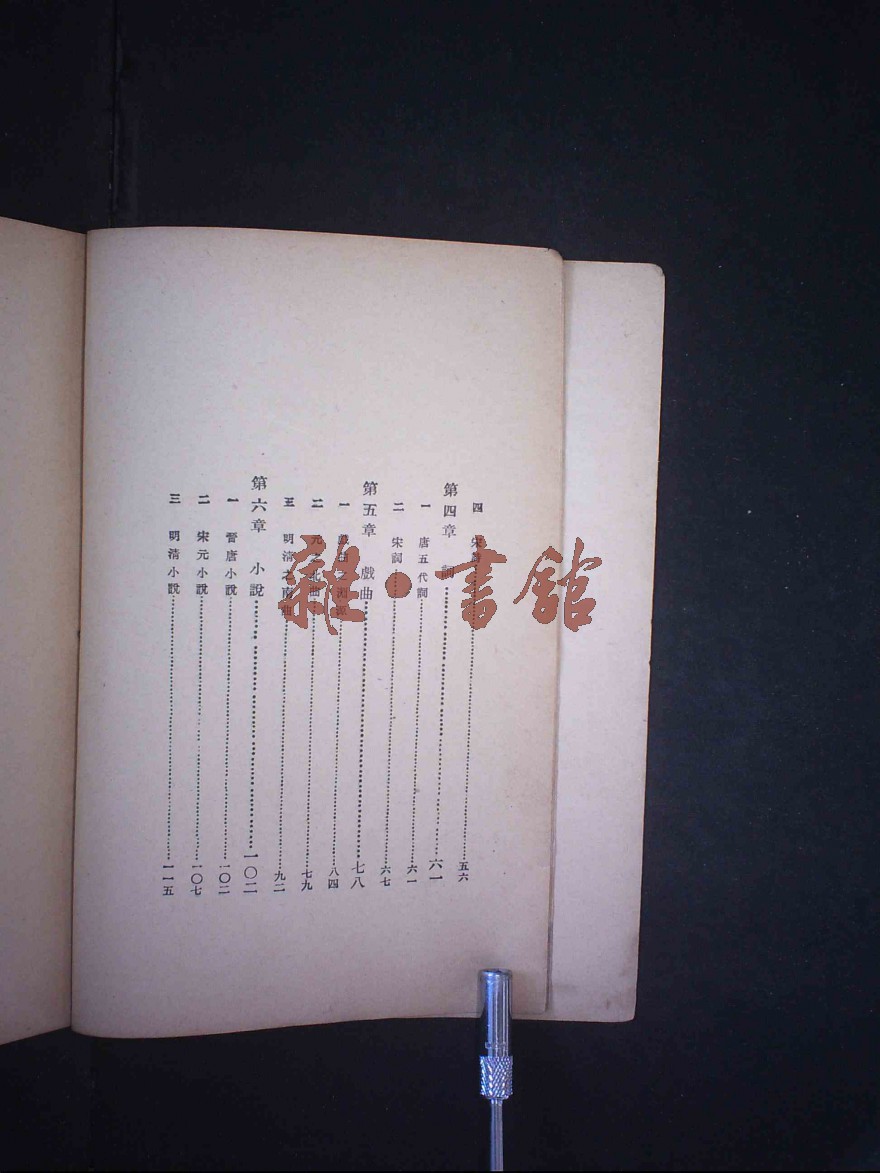 四 宋詩……五六
第四章 詞……六一
一 唐五代詞……六一
二 宋詞……六七
第五章 戲曲……七八
一 戲曲之淵源……八四
二 元之北曲……七九
三 明清之南曲……九二
第六章 小說……一〇二
一 晉唐小說……一〇二
二 宋元小說……一〇七
三 明清小說……一一五
雜·書館